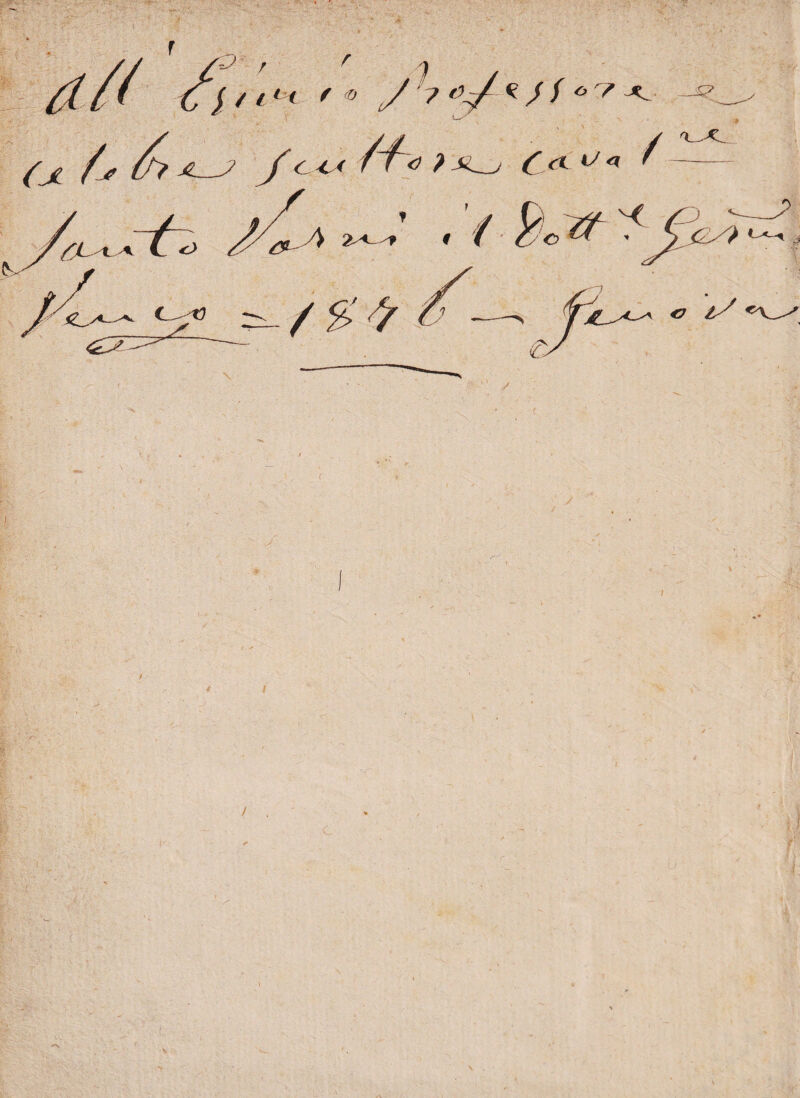 All' Esimio Professore e
celebre scultore caval.re
Santo Varni il Dott.e
= 1876 — Genova